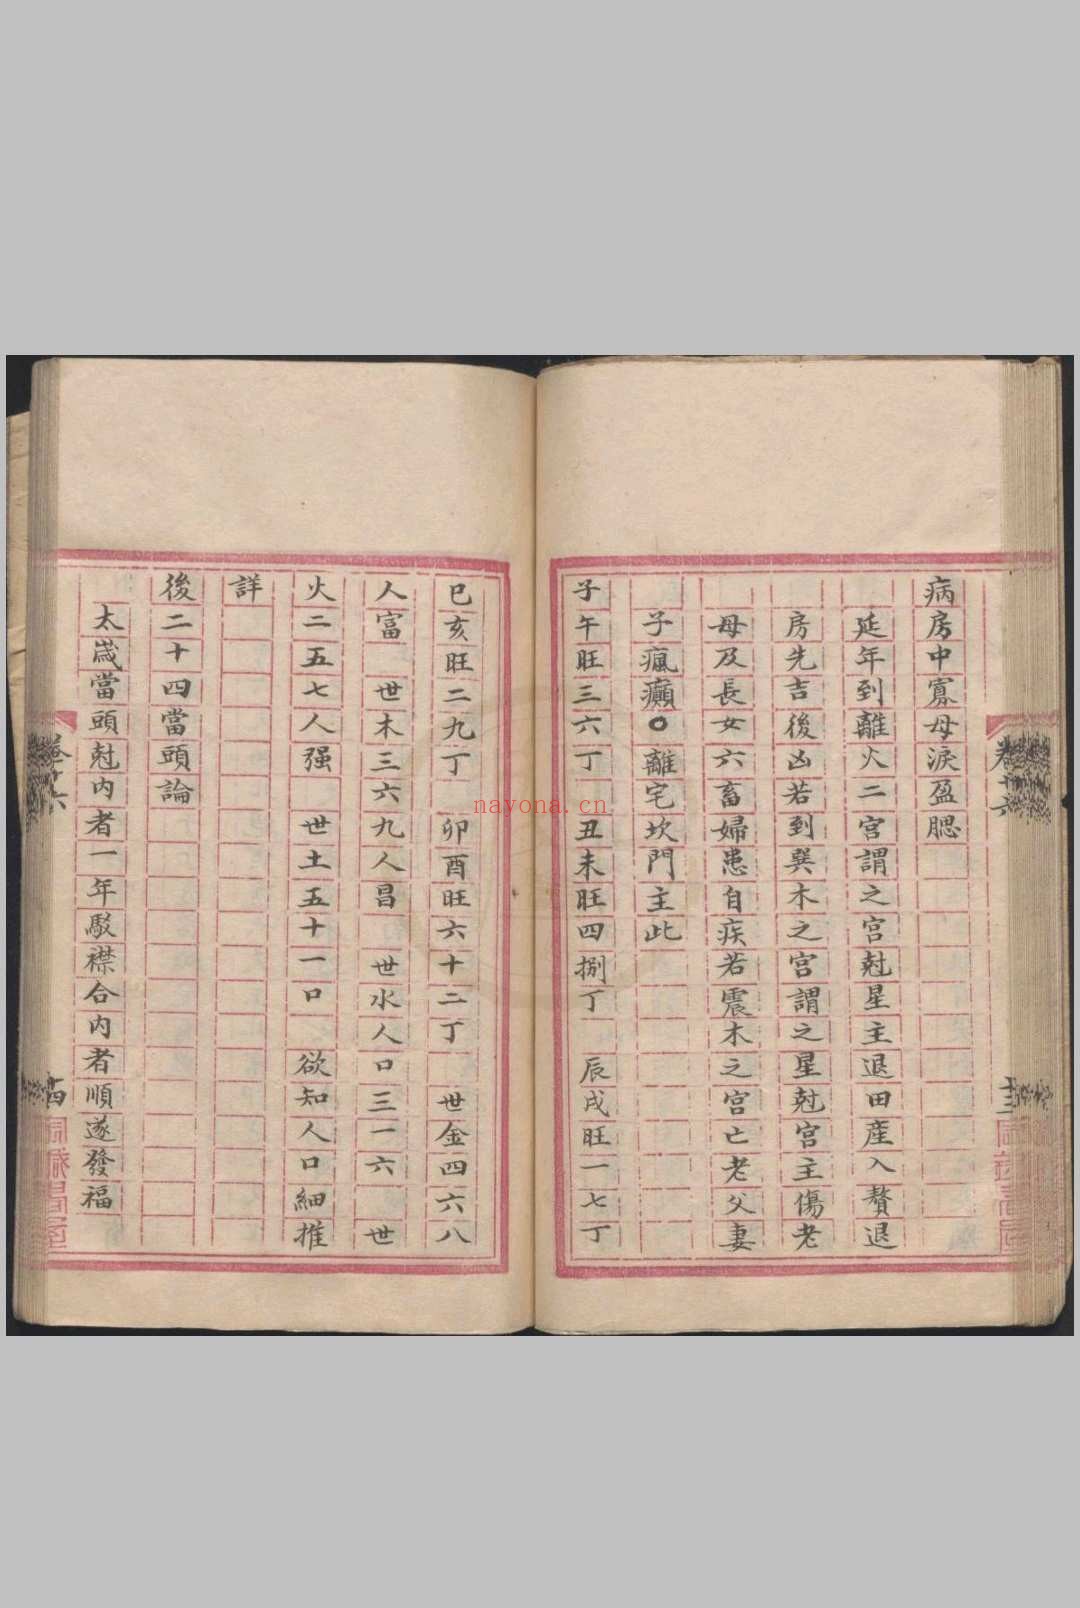 病房中寡母淚盈腮
延年到離火二宮謂之宮尅星主退田産入贅退
房先吉後凶若到巽木之宮謂之星尅宮主傷老
母及長女六畜婦患自疾若震木之宮亡老父妻
子瘋癲〇離宅坎門主此
子午旺三六丁 丑未旺四捌丁 辰戌旺一七丁
巳亥旺二九丁 卯酉旺六十二丁 世金四六八
人富 世木三六九人昌 世水人口三一六 世
火二五七人强 世土五十一口 欲知人口細推
詳
後二十四當頭論
太歲當頭尅內者一年駁襟合內者順遂發福
卷十六
十三
卷十六
十四
nayona.cn